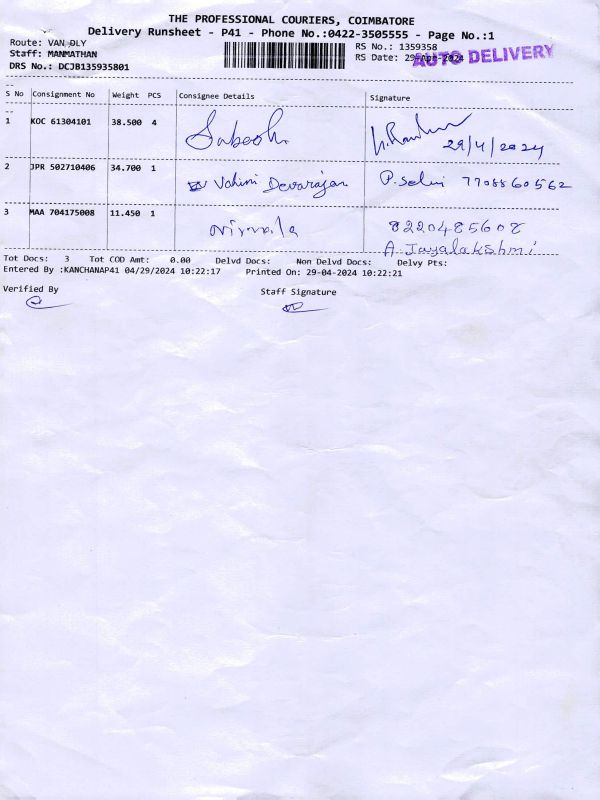 THE PROFESSIONAL COURIERS, COIMBATORE
Delivery Runsheet - P41 - Phone No.:0422-3505555 - Page No.:1
Route: VAN DLY
RS No.: 1359358
Staff: MANMATHAN
RS Date: 29-Apr-2024
AUTO DELIVERY
DRS No.: DCJB135935801
S No Consignment No Weight PCS Consignee Details Signature
1 KOC 61304101 38.500 4 29/4/2024
2 JPR 502710406 34.700 1 Vahini Devarajan P. Selvi 7708560562
3 MAA 704175008 11.450 1 Nirmala 8220485608
A. Jayalakshmi
Tot Docs: 3 Tot COD Amt: 0.00 Delvd Docs: Non Delvd Docs: Delvy Pts:
Entered By :KANCHANAP41 04/29/2024 10:22:17 Printed On: 29-04-2024 10:22:21
Verified By Staff Signature